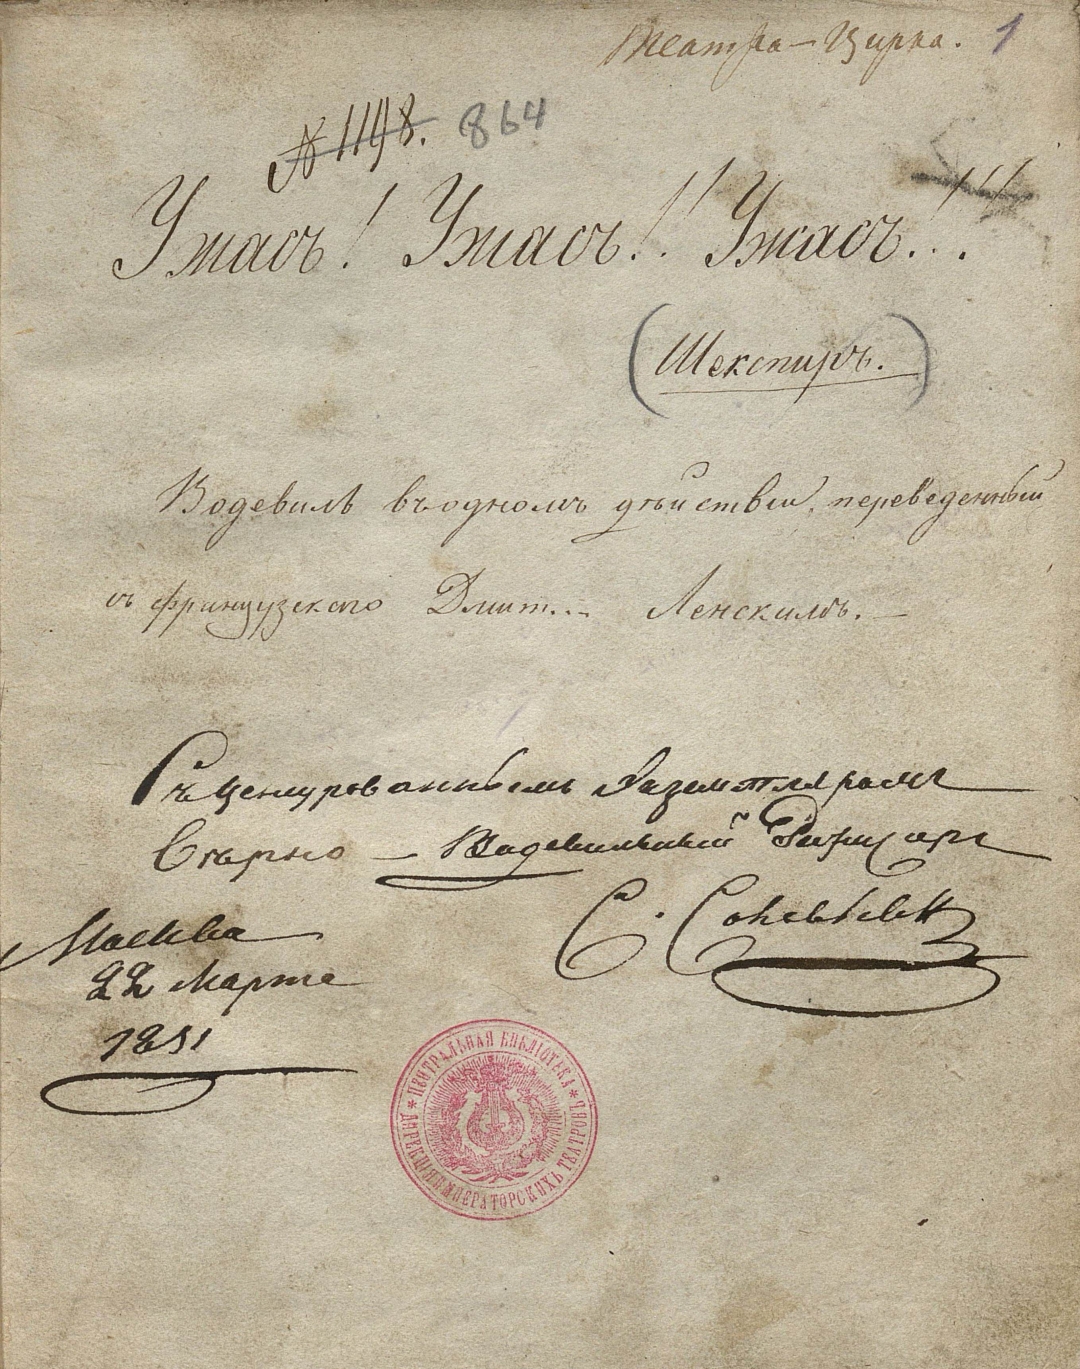 Театра-Цирка. 1
№ 1198. 864
Ужасъ! Ужасъ!! Ужасъ!!!...
(Шекспиръ.)
Водевиль въ одномъ дѣйствіи, переведенный
съ французскаго Дмит... Ленскимъ.
Съ ценсурованнымъ Экземпляромъ
Вѣрно — Водевильный Режисеръ
С. Соловьевъ
Москва
22 Марта
1851
* ЦЕНТРАЛЬНАЯ БИБЛІОТЕКА *
ДИРЕКЦІИ ИМПЕРАТОРСКИХЪ ТЕАТРОВЪ